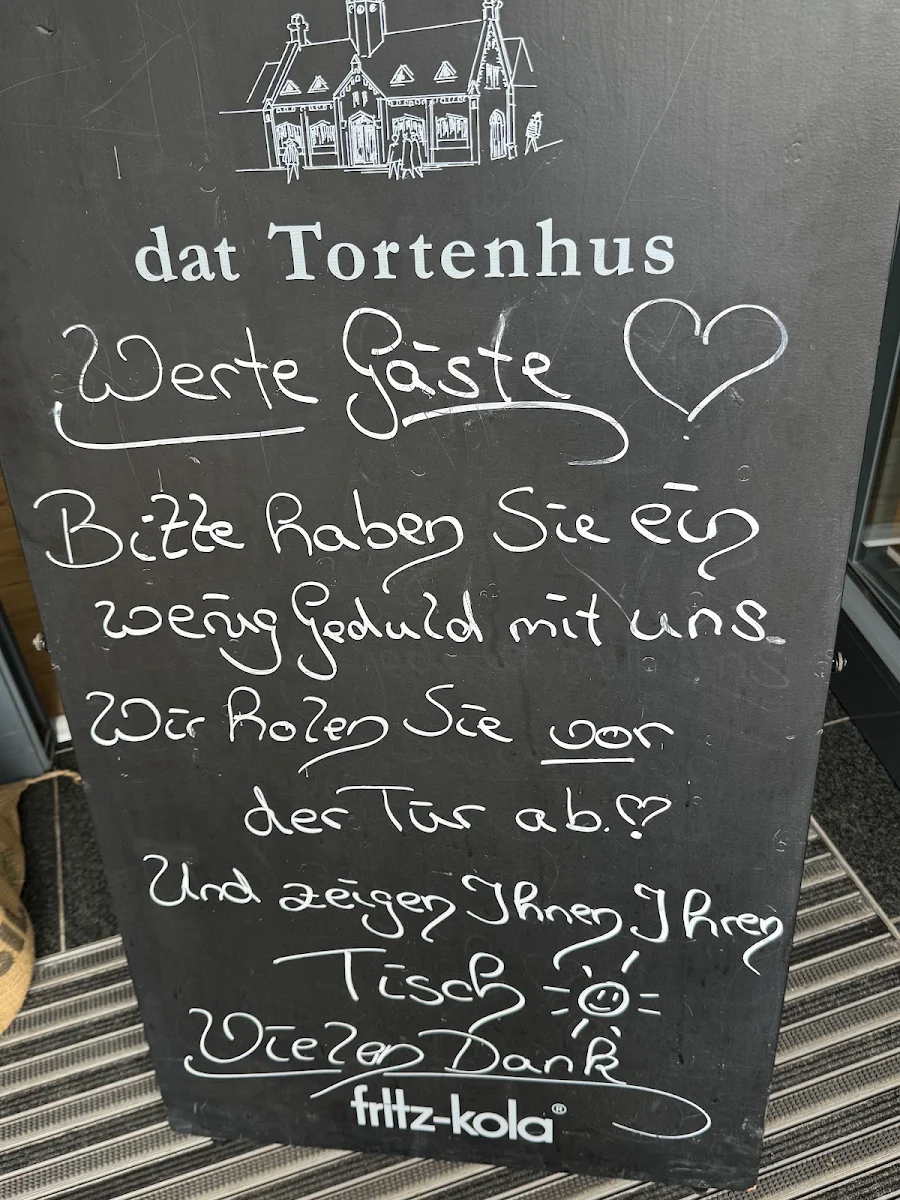 dat Tortenhus
Werte Gäste
Bitte haben Sie ein
wenig Geduld mit uns.
Wir holen Sie vor
der Tür ab.
Und zeigen Ihnen Ihren
Tisch
Vielen Dank
fritz-kola®